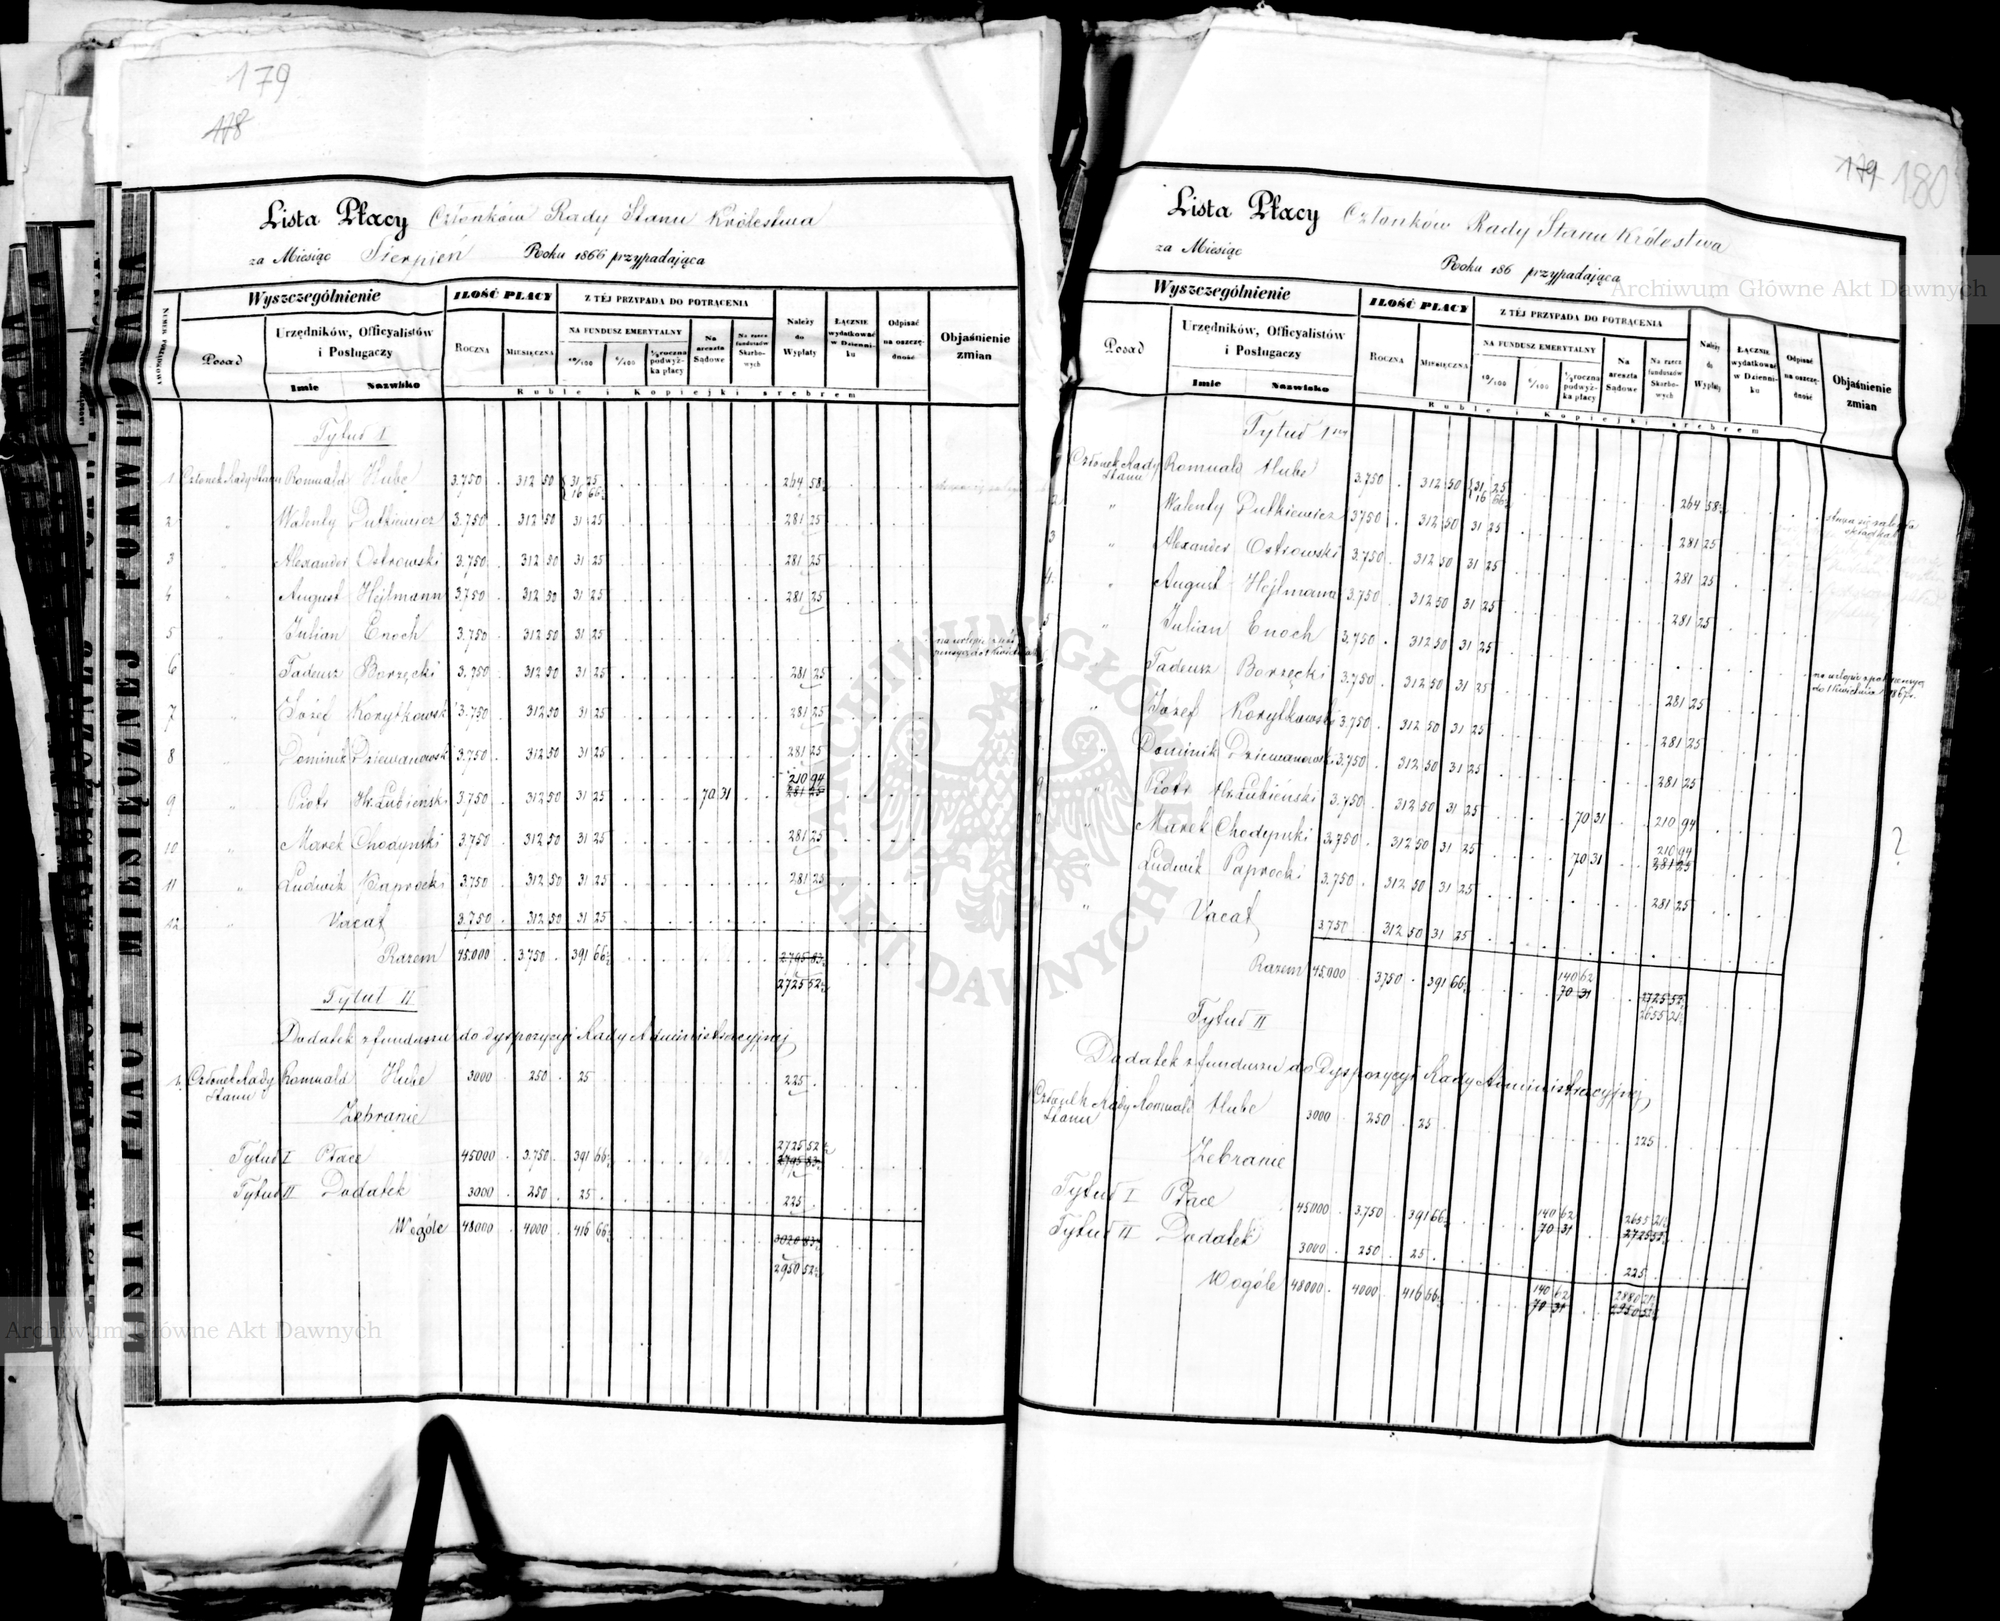 179
178
Lista Płacy Członków Rady Stanu Królestwa
za Miesiąc Sierpień Roku 1866 przypadająca
NUMER PORZĄDKOWY
Wyszczególnienie
Posad
Urzędników, Officyalistów i Posługaczy
Imie Nazwisko
ILOŚĆ PŁACY
ROCZNA MIESIĘCZNA
Z TÉJ PRZYPADA DO POTRĄCENIA
NA FUNDUSZ EMERYTALNY
10/100 6/100 1/2 roczna podwyżka płacy
Na areszta Sądowe
Na rzecz funduszów Skarbowych
Należy do Wypłaty
ŁĄCZNIE wydatkować w Dzienniku
Odpisać na oszczędność
Objaśnienie zmian
Ruble i Kopiejki srebrem
Tytuł I
1 Członek Rady Stanu Romuald Hube 3.750 312 50 31 25 16 66 2/3 264 58
2 " Walenty Dutkiewicz 3.750 312 50 31 25 281 25
3 " Alexander Ostrowski 3.750 312 50 31 25 281 25
4 " August Hejlmann 3.750 312 50 31 25 281 25
5 " Julian Enoch 3.750 312 50 31 25
6 " Tadeusz Borzęcki 3.750 312 50 31 25 281 25
7 " Józef Korytkowski 3.750 312 50 31 25 281 25
8 " Dominik Dziewanowski 3.750 312 50 31 25 281 25
9 " Piotr Hr. Łubieński 3.750 312 50 31 25 70 31 210 94 281 25
10 " Marek Chodyński 3.750 312 50 31 25 281 25
11 " Ludwik Paprocki 3.750 312 50 31 25 281 25
12 " Vacat 3.750 312 50 31 25
Razem 45.000 3.750 391 66 2795 83
2725 52
Tytuł II
Dodatek z funduszu do dyspozycyi Rady Administracyjnej
1. Członek Rady Stanu Romuald Hube 3000 250 25 225
Zebranie
Tytuł I Płace 45000 3.750 391 66 2725 52 2795 83
Tytuł II Dodatek 3000 250 25 225
Wogóle 48000 4000 416 66 3020 83
2950 52
179 180
Lista Płacy Członków Rady Stanu Królestwa
za Miesiąc Roku 186 przypadająca
Wyszczególnienie
Posad
Urzędników, Officyalistów i Posługaczy
Imie Nazwisko
ILOŚĆ PŁACY
ROCZNA MIESIĘCZNA
Z TÉJ PRZYPADA DO POTRĄCENIA
NA FUNDUSZ EMERYTALNY
10/100 6/100 1/2 roczna podwyżka płacy
Na areszta Sądowe
Na rzecz funduszów Skarbowych
Należy do Wypłaty
ŁĄCZNIE wydatkować w Dzienniku
Odpisać na oszczędność
Objaśnienie zmian
Ruble i Kopiejki srebrem
Tytuł I
Członek Rady Stanu Romuald Hube 3.750 312 50 31 25 16 66 264 58
2 " Walenty Dutkiewicz 3750 312 50 31 25 281 25
3 " Alexander Ostrowski 3.750 312 50 31 25 281 25
4. " August Hejlmann 3.750 312 50 31 25 281 25
5 " Julian Enoch 3.750 312 50 31 25
" Tadeusz Borzęcki 3.750 312 50 31 25 281 25
" Józef Korytkowski 3.750 312 50 31 25 281 25
" Dominik Dziewanowski 3.750 312 50 31 25 281 25
9 " Piotr Hr. Łubieński 3.750 312 50 31 25 70 31 210 94
" Marek Chodyński 3.750 312 50 31 25 70 31 210 94 281 25 ?
" Ludwik Paprocki 3.750 312 50 31 25 281 25
" Vacat 3.750 312 50 31 25
Razem 45.000 3750 391 66 140 62 70 31 2725 52
2655 21
Tytuł II
Dodatek z funduszu do Dyspozycyi Rady Administracyjnej
Członek Rady Stanu Romuald Hube 3000 250 25 225
Zebranie
Tytuł I Płace 45000 3.750 391 66 140 62 70 31 2655 21 2725 52
Tytuł II Dodatek 3000 250 25 225
Wogóle 48000 4000 416 66 140 62 70 31 2880 21 2950 52
LISTA PŁACY MIESIĘCZNEJ
Archiwum Główne Akt Dawnych
Archiwum Główne Akt Dawnych
ARCHIWUM GŁÓWNE AKT DAWNYCH